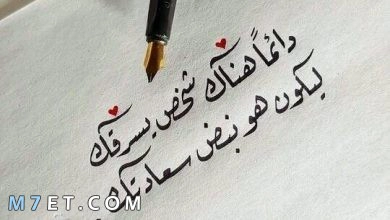 دائماً هناك شخص يسرقك
ليكون هو نبض سعادتك
M7ET.COM